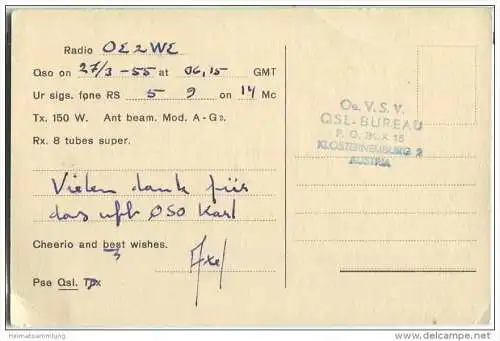 Radio OE2WE
Qso on 27/3 -55 at 06,15 GMT
Ur sigs. fone RS 5 9 on 14 Mc
Tx. 150 W. Ant beam. Mod. A-G2.
Rx. 8 tubes super.
Vielen dank für
das ufb QSO Karl
Cheerio and best wishes.
73
Axel
Pse Qsl. Tpx
Oe. V. S. V.
QSL-BUREAU
P. O. BOX 15
KLOSTERNEUBURG 2
AUSTRIA
Heimatsammlung
www.delcampe.net